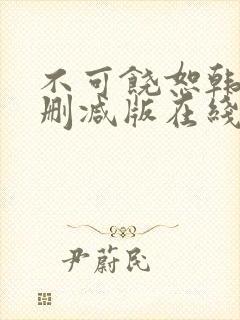 不可饶恕韩
删减版在线
尹蔚民